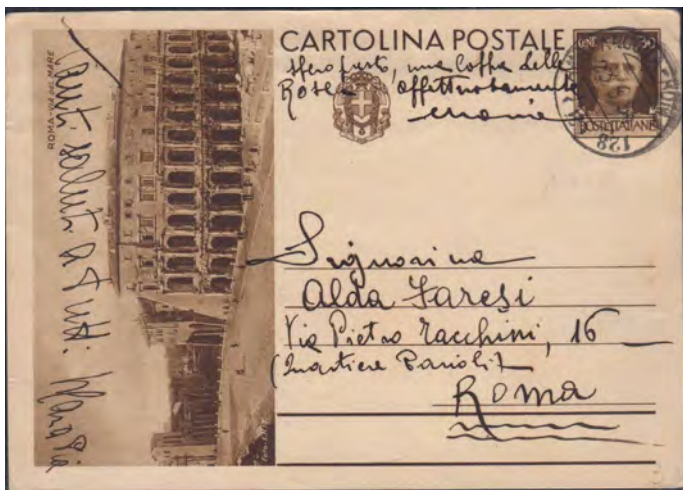 CARTOLINA POSTALE
spero presto, una coppa della
Rosea affettuosamente
POSTE ITALIANE
128
ROMA - VIA DEL MARE
Tanti saluti a tutti: Maria Pia
Signorina
Alda Faresi
Via Pietro Tacchini, 16
(Quartiere Parioli)
Roma